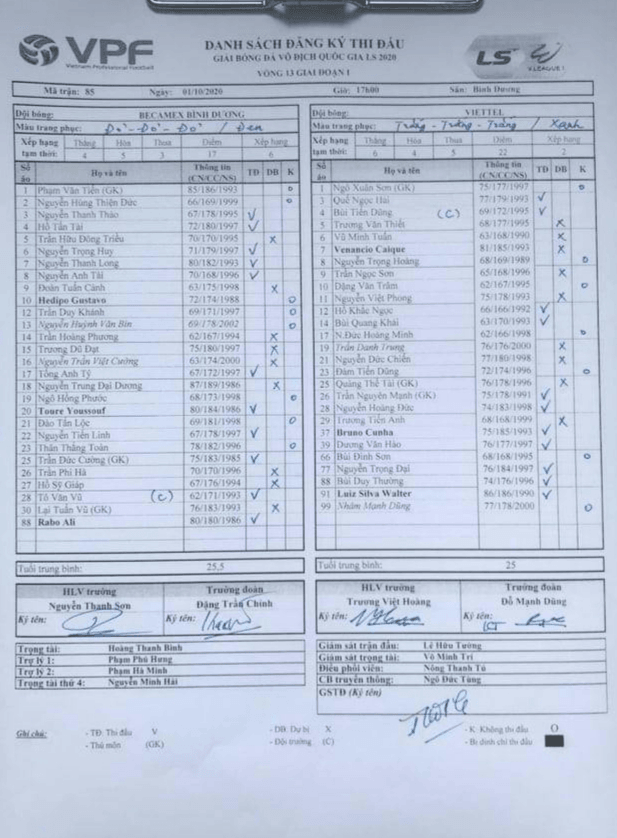 VPF
Vietnam Professional Football
DANH SÁCH ĐĂNG KÝ THI ĐẤU
GIẢI BÓNG ĐÁ VÔ ĐỊCH QUỐC GIA LS 2020
VÒNG 13 GIAI ĐOẠN I
LS V.LEAGUE 1
Mã trận: 85 Ngày: 01/10/2020 Giờ: 17h00 Sân: Bình Dương
Đội bóng: BECAMEX BÌNH DƯƠNG
Màu trang phục: Đỏ - Đỏ - Đỏ / Đen
Xếp hạng tạm thời: Thắng Hòa Thua Điểm Xếp hạng
4 5 3 17 6
Số áo Họ và tên Thông tin (CN/CC/NS) TĐ DB K
1 Phạm Văn Tiến (GK) 85/186/1993 O
2 Nguyễn Hùng Thiện Đức 66/169/1999 O
3 Nguyễn Thanh Thảo 67/178/1995 V
4 Hồ Tấn Tài 72/180/1997 V
5 Trần Hữu Đông Triều 70/170/1995 X
6 Nguyễn Trọng Huy 71/179/1997 V
7 Nguyễn Thanh Long 80/182/1993 V
8 Nguyễn Anh Tài 70/168/1996 V
9 Đoàn Tuấn Cảnh 63/175/1998 X
10 Hedipo Gustavo 72/174/1988 O
12 Trần Duy Khánh 69/171/1997 O
13 Nguyễn Huỳnh Văn Bin 69/178/2002 O
14 Trần Hoàng Phương 62/167/1994 X
15 Trương Dũ Đạt 75/180/1997 X
16 Nguyễn Trần Việt Cường 63/174/2000 X
17 Tống Anh Tỷ 67/172/1997 V
18 Nguyễn Trung Đại Dương 87/189/1986 X
19 Ngô Hồng Phước 68/173/1998 O
20 Toure Youssouf 80/184/1986 V
21 Đào Tấn Lộc 69/181/1998 O
22 Nguyễn Tiến Linh 67/178/1997 V
23 Thân Thắng Toàn 78/182/1996 O
25 Trần Đức Cường (GK) 75/183/1985 V
26 Trần Phi Hà 70/170/1996 X
27 Hồ Sỹ Giáp 67/176/1994 X
28 Tô Văn Vũ (C) 62/171/1993 V
30 Lại Tuấn Vũ (GK) 76/183/1993 X
88 Rabo Ali 80/180/1986 V
Tuổi trung bình: 25,5
HLV trưởng Trưởng đoàn
Nguyễn Thanh Sơn Đặng Trần Chỉnh
Ký tên: Ký tên:
Trọng tài: Hoàng Thanh Bình
Trợ lý 1: Phạm Phú Hưng
Trợ lý 2: Phạm Hà Minh
Trọng tài thứ 4: Nguyễn Minh Hải
Đội bóng: VIETTEL
Màu trang phục: Trắng - Trắng - Trắng / Xanh
Xếp hạng tạm thời: Thắng Hòa Thua Điểm Xếp hạng
6 4 5 22 2
Số áo Họ và tên Thông tin (CN/CC/NS) TĐ DB K
1 Ngô Xuân Sơn (GK) 75/177/1997 O
3 Quế Ngọc Hải 77/179/1993 V
4 Bùi Tiến Dũng (C) 69/172/1995 V
5 Trương Văn Thiết 68/177/1995 X
6 Vũ Minh Tuấn 63/168/1990 X
7 Venancio Caique 81/185/1993 X
8 Nguyễn Trọng Hoàng 68/169/1989 O
9 Trần Ngọc Sơn 65/168/1996 X
10 Đặng Văn Trâm 62/167/1995 O
11 Nguyễn Việt Phong 75/178/1993 X
12 Hồ Khắc Ngọc 66/166/1992 V
14 Bùi Quang Khải 63/170/1993 V
17 N.Đức Hoàng Minh 62/166/1998 O
19 Trần Danh Trung 76/176/2000 X
21 Nguyễn Đức Chiến 77/180/1998 X
23 Đàm Tiến Dũng 72/174/1996 O
25 Quàng Thế Tài (GK) 76/178/1996 X
26 Trần Nguyên Mạnh (GK) 75/178/1991 V
28 Nguyễn Hoàng Đức 74/183/1998 V
29 Trương Tiến Anh 68/168/1999 X
37 Bruno Cunha 75/185/1993 V
39 Dương Văn Hào 76/177/1997 V
66 Bùi Đình Sơn 68/168/1995 O
77 Nguyễn Trọng Đại 76/184/1997 V
88 Bùi Duy Thường 74/176/1996 V
91 Luiz Silva Walter 86/186/1990 V
99 Nhâm Mạnh Dũng 77/178/2000 O
Tuổi trung bình: 25
HLV trưởng Trưởng đoàn
Trương Việt Hoàng Đỗ Mạnh Dũng
Ký tên: Ký tên:
Giám sát trận đấu: Lê Hữu Tường
Giám sát trọng tài: Võ Minh Trí
Điều phối viên: Nông Thanh Tú
CB truyền thông: Ngô Đức Tùng
GSTĐ (Ký tên)
Ghi chú: - TĐ: Thi đấu V - DB: Dự bị X - K: Không thi đấu O
- Thủ môn (GK) - Đội trưởng (C) - Bị đình chỉ thi đấu